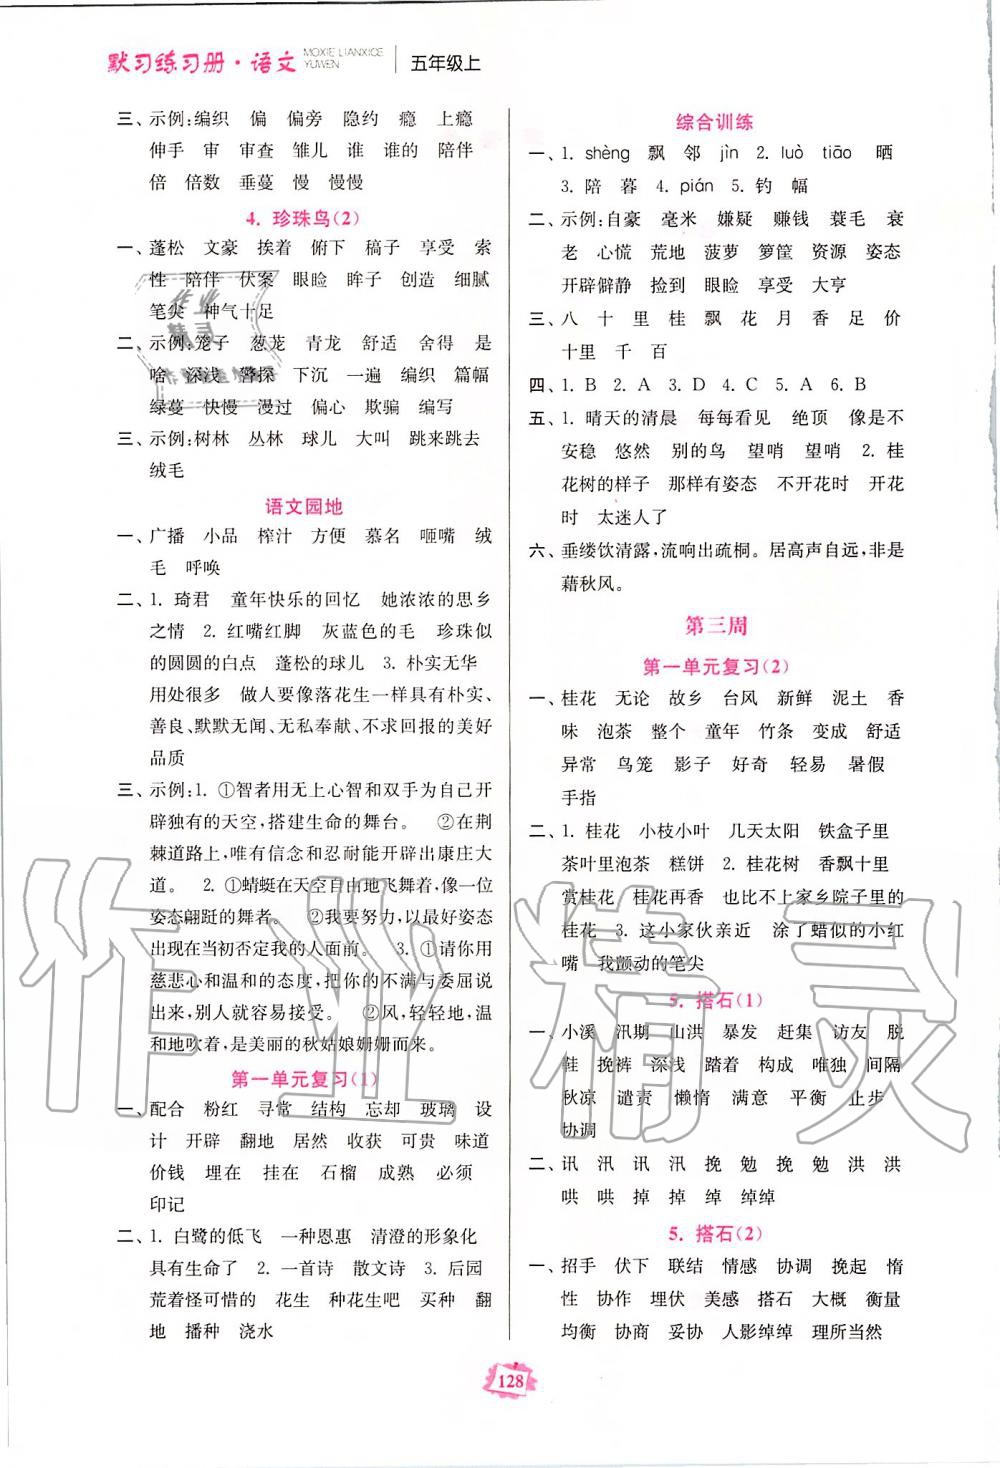 默习练习册·语文
MOXIE LIANXICE
YUWEN
五年级上
三、示例:编织 偏 偏旁 隐约 瘾 上瘾
伸手 审 审查 雏儿 谁 谁的 陪伴
倍 倍数 垂蔓 慢 慢慢
4. 珍珠鸟(2)
一、蓬松 文豪 挨着 俯下 稿子 享受 索
性 陪伴 伏案 眼睑 眸子 创造 细腻
笔尖 神气十足
二、示例:笼子 葱茏 青龙 舒适 舍得 是
啥 深浅 警探 下沉 一遍 编织 篇幅
绿蔓 快慢 漫过 偏心 欺骗 编写
三、示例:树林 丛林 球儿 大叫 跳来跳去
绒毛
语文园地
一、广播 小品 榨汁 方便 慕名 咂嘴 绒
毛 呼唤
二、1. 琦君 童年快乐的回忆 她浓浓的思乡
之情 2. 红嘴红脚 灰蓝色的毛 珍珠似
的圆圆的白点 蓬松的球儿 3. 朴实无华
用处很多 做人要像落花生一样具有朴实、
善良、默默无闻、无私奉献、不求回报的美好
品质
三、示例:1. ①智者用无上心智和双手为自己开
辟独有的天空,搭建生命的舞台。 ②在荆
棘道路上,唯有信念和忍耐能开辟出康庄大
道。 2. ①蜻蜓在天空自由地飞翔,像一位
姿态翩跹的舞者。 ②我要努力,以最好姿态
出现在当初否定我的人面前。 3. ①请你用
慈悲心和温和的态度,把你的不满与委屈说出
来,别人就容易接受。 ②风,轻轻地,温
和地吹着,是美丽的秋姑娘姗姗而来。
第一单元复习(1)
一、配合 粉红 寻常 结构 忘却 玻璃 设
计 开辟 翻地 居然 收获 可贵 味道
价钱 埋在 挂在 石榴 成熟 必须
印记
二、1. 白鹭的低飞 一种恩惠 清澄的形象化
具有生命了 2. 一首诗 散文诗 3. 后园
荒着怪可惜的 花生 种花生吧 买种 翻
地 播种 浇水
综合训练
一、1. shèng 飘 邻 jìn 2. luò tiāo 晒
3. 陪 暮 4. pián 5. 钓 幅
二、示例:自豪 毫米 嫌疑 赚钱 蓑毛 衰
老 心慌 荒地 菠萝 箩筐 资源 姿态
开辟僻静 捡到 眼睑 享受 大亨
三、八 十 里 桂 飘 花 月 香 足 价
十里 千 百
四、1. B 2. A 3. D 4. C 5. A 6. B
五、1. 晴天的清晨 每每看见 绝顶 像是不
安稳 悠然 别的鸟 望哨 望哨 2. 桂
花树的样子 那样有姿态 不开花时 开花
时 太迷人了
六、垂缕饮清露,流响出疏桐。居高声自远,非是
藉秋风。
第三周
第一单元复习(2)
一、桂花 无论 故乡 台风 新鲜 泥土 香
味 泡茶 整个 童年 竹条 变成 舒适
异常 鸟笼 影子 好奇 轻易 暑假
手指
二、1. 桂花 小枝小叶 几天太阳 铁盒子里
茶叶里泡茶 糕饼 2. 桂花树 香飘十里
赏桂花 桂花再香 也比不上家乡院子里的
桂花 3. 这小家伙亲近 涂了蜡似的小红
嘴 我颤动的笔尖
5. 搭石(1)
一、小溪 汛期 山洪 暴发 赶集 访友 脱
鞋 挽裤 深浅 踏着 构成 唯独 间隔
秋凉 谴责 懒惰 满意 平衡 止步
协调
二、讯 汛 讯 汛 挽 勉 挽 勉 洪 洪
哄 哄 掉 掉 绰 绰绰
5. 搭石(2)
一、招手 伏下 联结 情感 协调 挽起 惰
性 协作 埋伏 美感 搭石 大概 衡量
均衡 协商 妥协 人影绰绰 理所当然
128
作业精灵
作业
精灵